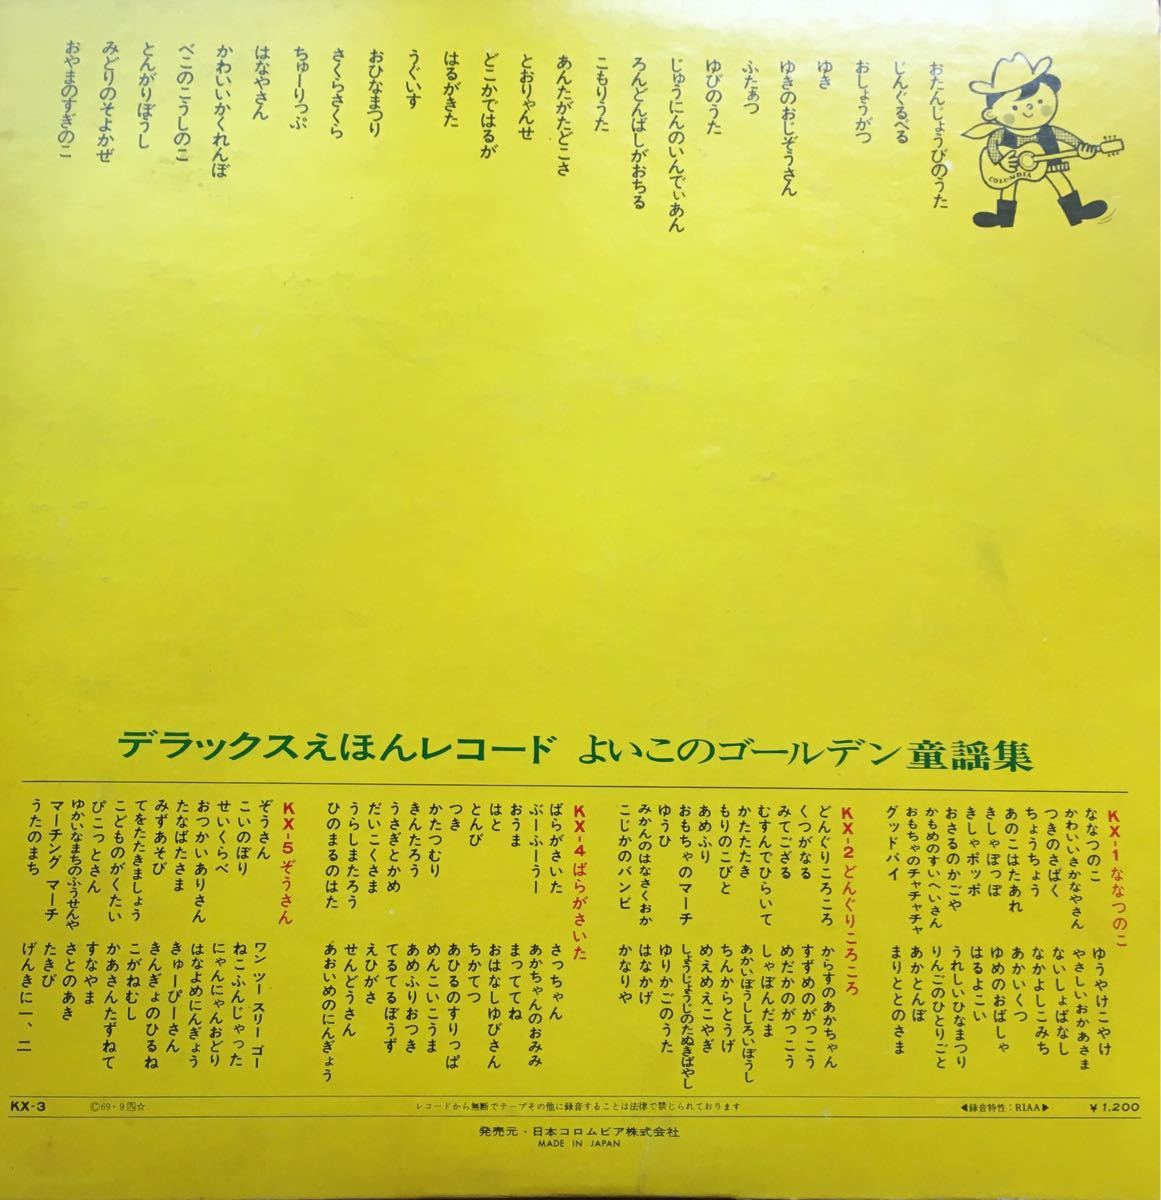 COLUMBIA
おたんじょうびのうた
じんぐるべる
おしょうがつ
ゆき
ゆきのおじぞうさん
ふたあつ
ゆびのうた
じゅうにんのいんでぃあん
ろんどんばしがおちる
こもりうた
あんたがたどこさ
とおりゃんせ
どこかではるが
はるがきた
うぐいす
おひなまつり
さくらさくら
ちゅーりっぷ
はなやさん
かわいいかくれんぼ
べこのこうしのこ
とんがりぼうし
みどりのそよかぜ
おやまのすぎのこ
デラックスえほんレコード よいこのゴールデン童謡集
KX-1ななつのこ
ななつのこ
かわいいさかなやさん
つきのさばく
ちょうちょう
あのこはたあれ
きしゃぽっぽ
きしゃポッポ
おさるのかごや
かもめのすいへいさん
おもちゃのチャチャチャ
グッドバイ
ゆうやけこやけ
やさしいおかあさま
ないしょばなし
なかよしこみち
あかいくつ
ゆめのおばしゃ
はるよこい
うれしいひなまつり
りんごのひとりごと
あかとんぼ
まりととのさま
KX-2どんぐりころころ
どんぐりころころ
くつがなる
みてござる
むすんでひらいて
かたたたき
もりのこびと
あめふり
おもちゃのマーチ
ゆうひ
みかんのはなさくおか
こじかのバンビ
からすのあかちゃん
すずめのがっこう
めだかのがっこう
しゃぼんだま
あかいぼうししろいぼうし
ちんからとうげ
めえめえこやぎ
しょうじょうじのたぬきばやし
ゆりかごのうた
はなかげ
かなりや
KX-4ばらがさいた
ばらがさいた
ぶーふーうー
おうま
はと
とんび
つき
かたつむり
きんたろう
うさぎとかめ
だいこくさま
うらしまたろう
ひのまるのはた
さっちゃん
あかちゃんのおみみ
まっててね
おはなしゆびさん
ちかてつ
あひるのすりっぱ
めんこいこうま
あめふりおつき
てるてるぼうず
えひがさ
せんどうさん
あおいめのにんぎょう
KX-5ぞうさん
ぞうさん
こいのぼり
せいくらべ
おつかいありさん
たなばたさま
みずあそび
てをたたきましょう
こどものがくたい
ぴこっとさん
ゆかいなまちのふうせんや
マーチング マーチ
うたのまち
ワン ツー スリー ゴー
ねこふんじゃった
にゃんにゃんおどり
はなよめにんぎょう
きゅーぴーさん
きんぎょのひるね
こがねむし
かあさんたずねて
すなやま
さとのあき
たきび
げんきに一、二
KX-3 ©69・9 四☆ レコードから無断でテープその他に録音することは法律で禁じられております ◀録音特性：RIAA▶ ¥1,200
発売元・日本コロムビア株式会社
MADE IN JAPAN